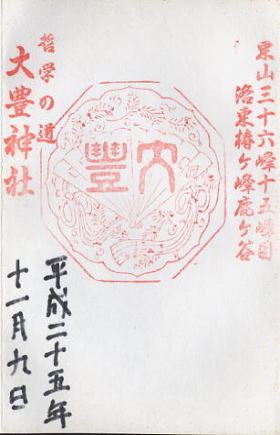 東山三十六峰十五峰目
洛東椿ケ峰鹿ケ谷
大豊
哲学の道
大豊神社
平成二十五年
十一月九日